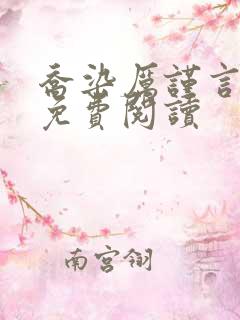 喬染厲謹言
免費閱讀
南宮翎